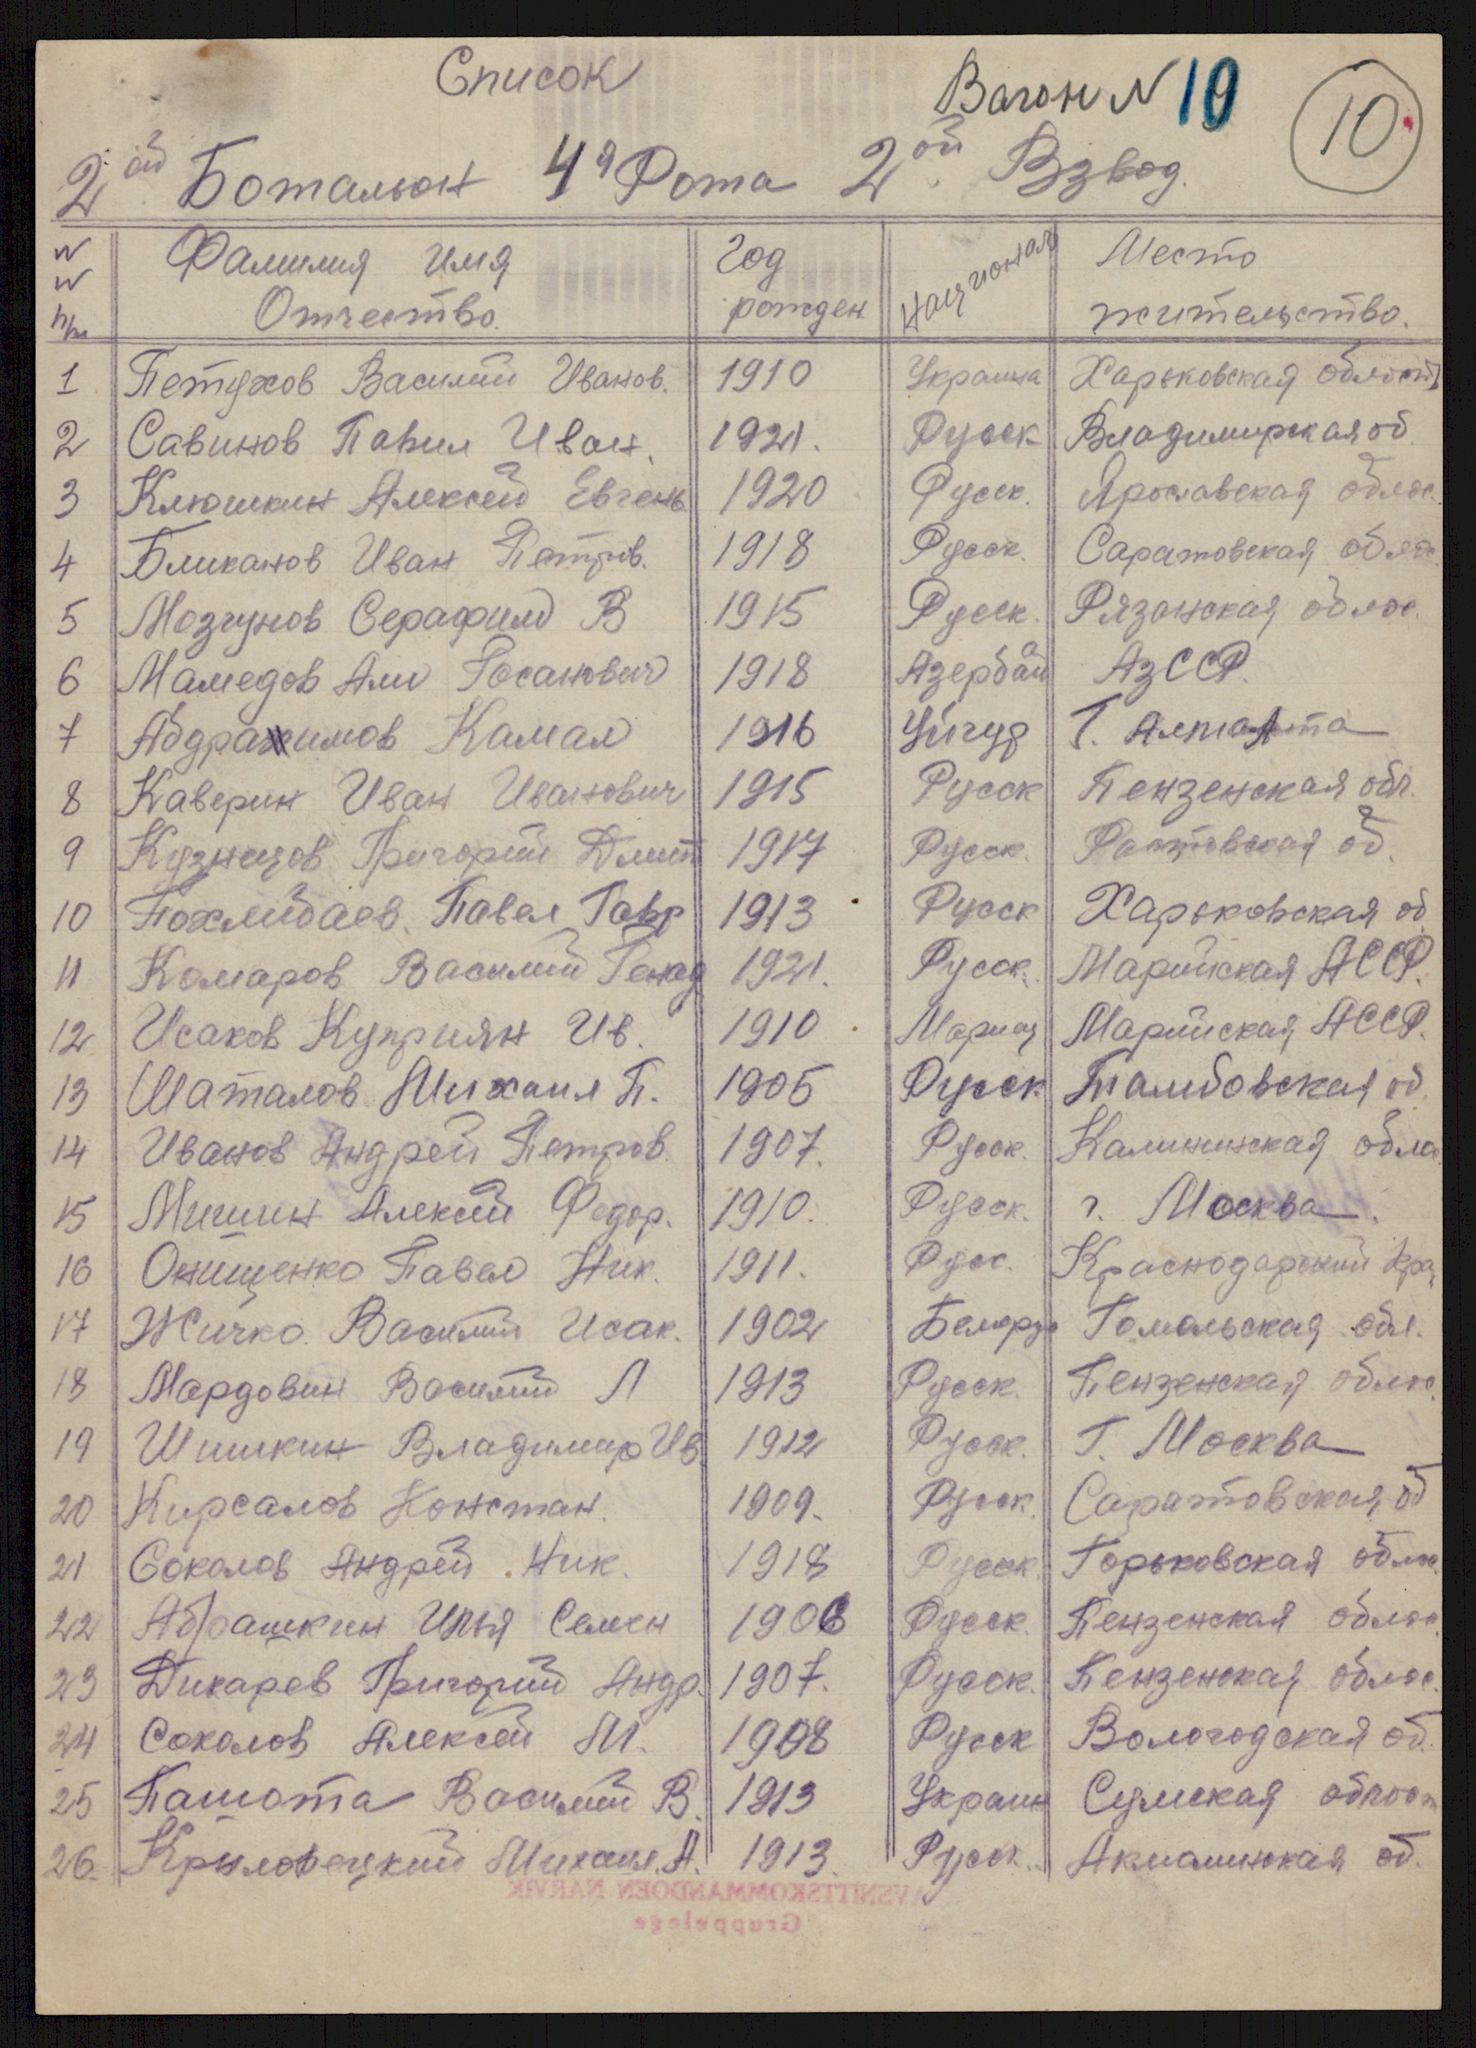 Список
Вагон N 19
10
2ой Ботальон 4я Рота 2ой Взвод.
N N п/п Фамилия имя Отчество. Год рожден Национал Место жительство.
1 Петухов Василий Иванов. 1910 Украина Харьковская область
2 Савинов Павил Иван. 1921. Русск Владимирская об.
3 Клюшкин Алексей Евгень. 1920 Русск. Ярославская облас.
4 Бликанов Иван Петров. 1918 Русск. Саратовская облас
5 Мозгунов Серафим В 1915 Русск. Рязанская облас.
6 Мамедов Али Гасанович 1918 Азербай АзССР.
7 Абдрахимов Камал 1916 Уйгур Г. Алмаата
8 Каверин Иван Иванович 1915 Русск Пензенская обл.
9 Кузнецов Григорий Дмит 1917 Русск. Ростовская об.
10 Похлибаев. Павел Гавр 1913 Русск Харьковская об
11 Комаров Василий Генад 1921. Русск. Марийская АССР.
12 Исаков Куприян Ив. 1910 Мариец Марийская АССР.
13 Шаталов Михаил П. 1905 Русск Тамбовская об.
14 Иванов Андрей Петров. 1907. Русск. Калининская облас
15 Мишин Алексей Федор. 1910. Русск. г. Москва.
16 Онищенко Павел Ник. 1911. Русс. Краснодарский кра
17 Жичко. Василий Исак. 1902 Белорус Гомольская обл.
18 Мардовин Василий Л 1913 Русск. Пензенская облас.
19 Шишкин Владимир Ив. 1912 Русск. Г. Москва
20 Кирсалов Констан. 1909. Русск. Саратовская об
21 Соколов Андрей Ник. 1918 Русск. Горьковская облас.
22 Абрашкин Илья Семен 1906 Русск. Пензенская облас.
23 Дикарев Григорий Андр. 1907. Русск. Пензенская облас.
24 Соколов Алексей М. 1908 Русск Вологодская об.
25 Пашота Василий В. 1913 Украин Сумская област
26. Крыловецкий Михаил. А. 1913. Русск. Акмалинская об.
AVSNITTSKOMMANDOEN NARVIK